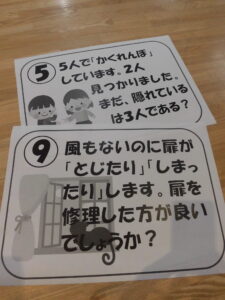 5
5人で「かくれんぼ」
しています。2人
見つかりました。
まだ、隠れている
は3人である?
9
風もないのに扉が
「とじたり」「しまっ
たり」します。扉を
修理した方が良い
でしょうか?